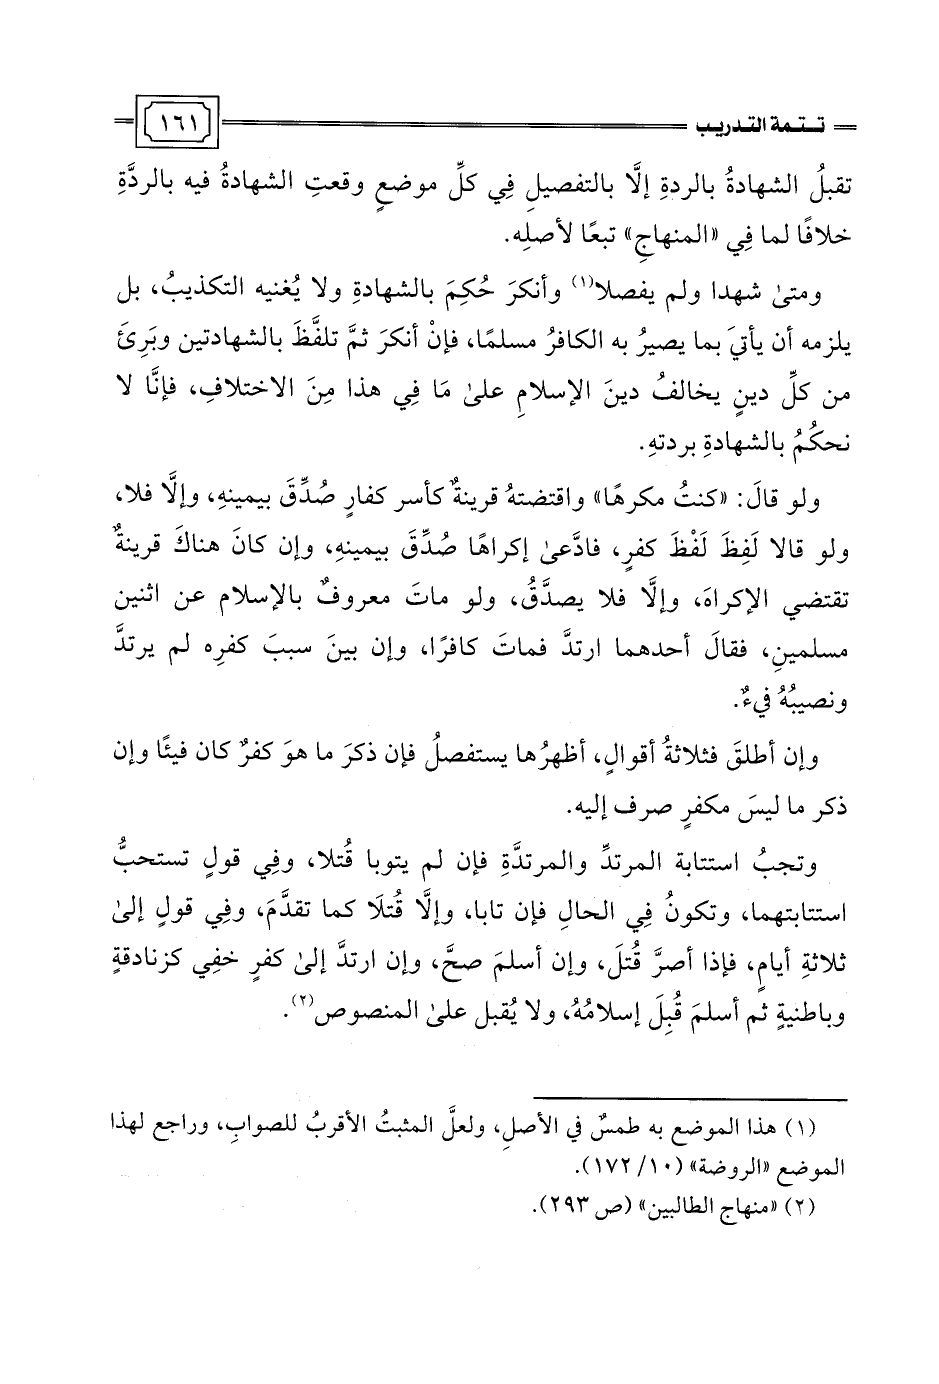 تتمة التدريب ١٦١
تقبلُ الشهادةُ بالردةِ إلَّا بالتفصيلِ فِي كلِّ موضعٍ وقعتِ الشهادةُ فيه بالردَّةِ
خلافًا لما فِي «المنهاجِ» تبعًا لأصلِه.
ومتىٰ شهدا ولم يفصلا(١) وأنكرَ حُكِمَ بالشهادةِ ولا يُغنيه التكذيبُ، بل
يلزمه أن يأتيَ بما يصيرُ به الكافرُ مسلمًا، فإنْ أنكرَ ثمَّ تلفَّظَ بالشهادتين وبَرِئَ
من كلِّ دينٍ يخالفُ دينَ الإسلامِ علىٰ مَا فِي هذا مِنَ الاختلافِ، فإنَّا لا
نحكُمُ بالشهادةِ بردتهِ.
ولو قالَ: «كنتُ مكرهًا» واقتضتهُ قرينةٌ كأسر كفارٍ صُدِّقَ بيمينهِ، وإلَّا فلا،
ولو قالا لَفِظَ لَفْظَ كفرٍ، فادَّعىٰ إكراهًا صُدِّقَ بيمينهِ، وإن كانَ هناكَ قرينةٌ
تقتضي الإكراهَ، وإلَّا فلا يصدَّقُ، ولو ماتَ معروفٌ بالإسلام عن اثنين
مسلمينِ، فقالَ أحدهما ارتدَّ فماتَ كافرًا، وإن بينَ سببَ كفرِه لم يرتدَّ
ونصيبُهُ فيءٌ.
وإن أطلقَ فثلاثةُ أقوالٍ، أظهرُها يستفصلُ فإن ذكرَ ما هوَ كفرٌ كان فيئًا وإن
ذكر ما ليسَ مكفرٍ صرف إليه.
وتجبُ استتابة المرتدِّ والمرتدَّةِ فإن لم يتوبا قُتلا، وفِي قولٍ تستحبُّ
استتابتهما، وتكونُ فِي الحالِ فإن تابا، وإلَّا قُتلَا كما تقدَّمَ، وفِي قولٍ إلىٰ
ثلاثةِ أيامٍ، فإذا أصرَّ قُتلَ، وإن أسلمَ صحَّ، وإن ارتدَّ إلىٰ كفرٍ خفِي كزنادقةٍ
وباطنيةٍ ثم أسلمَ قُبِلَ إسلامُهُ، ولا يُقبل علىٰ المنصوص(٢).
(١) هذا الموضع به طمسٌ في الأصلِ، ولعلَّ المثبتُ الأقربُ للصوابِ، وراجع لهذا
الموضع «الروضة» (١٠/ ١٧٢).
(٢) «منهاج الطالبين» (ص ٢٩٣).